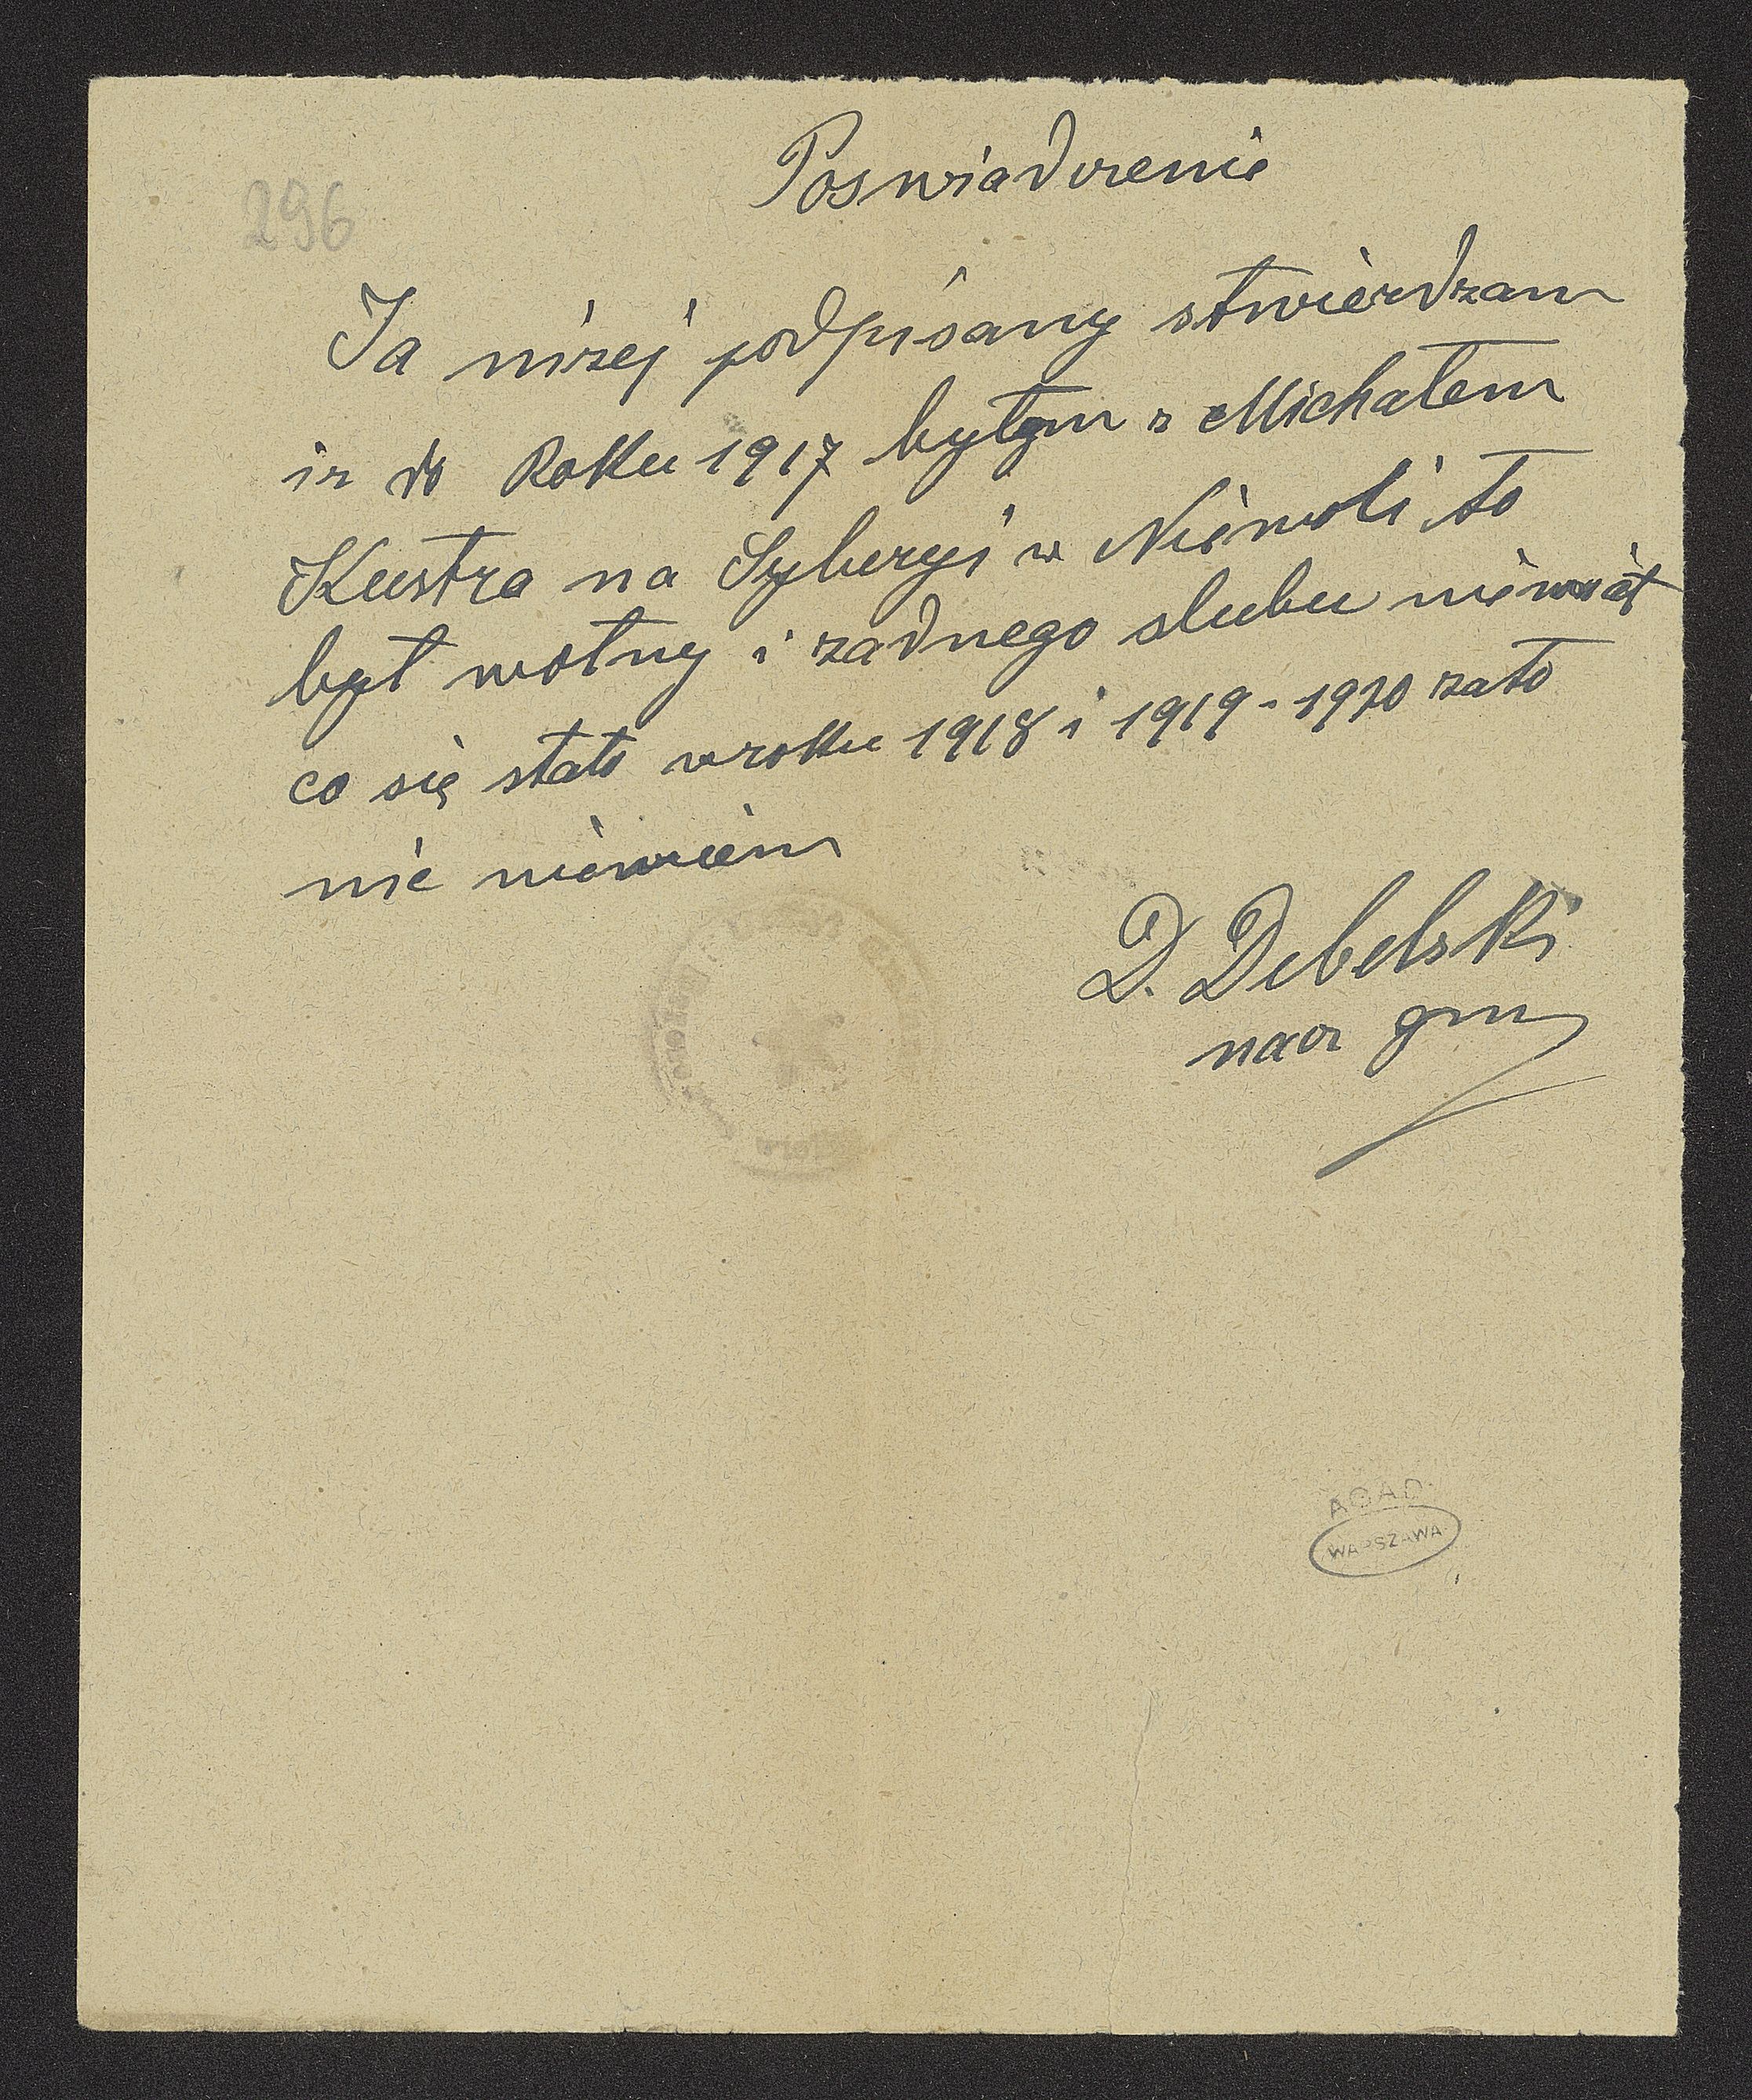 296
Poswiadczenie
Ja nizej podpisany stwierdzam
iz do Roku 1917 byłym z Michałem
Kustra na Syberyi w Niewoli to
był wolny i zadnego slubu niemiał
co się stało wroku 1918 i 1919-1920 zato
nic niewiem
D. Debelski
nacz gm
AGAD
WARSZAWA